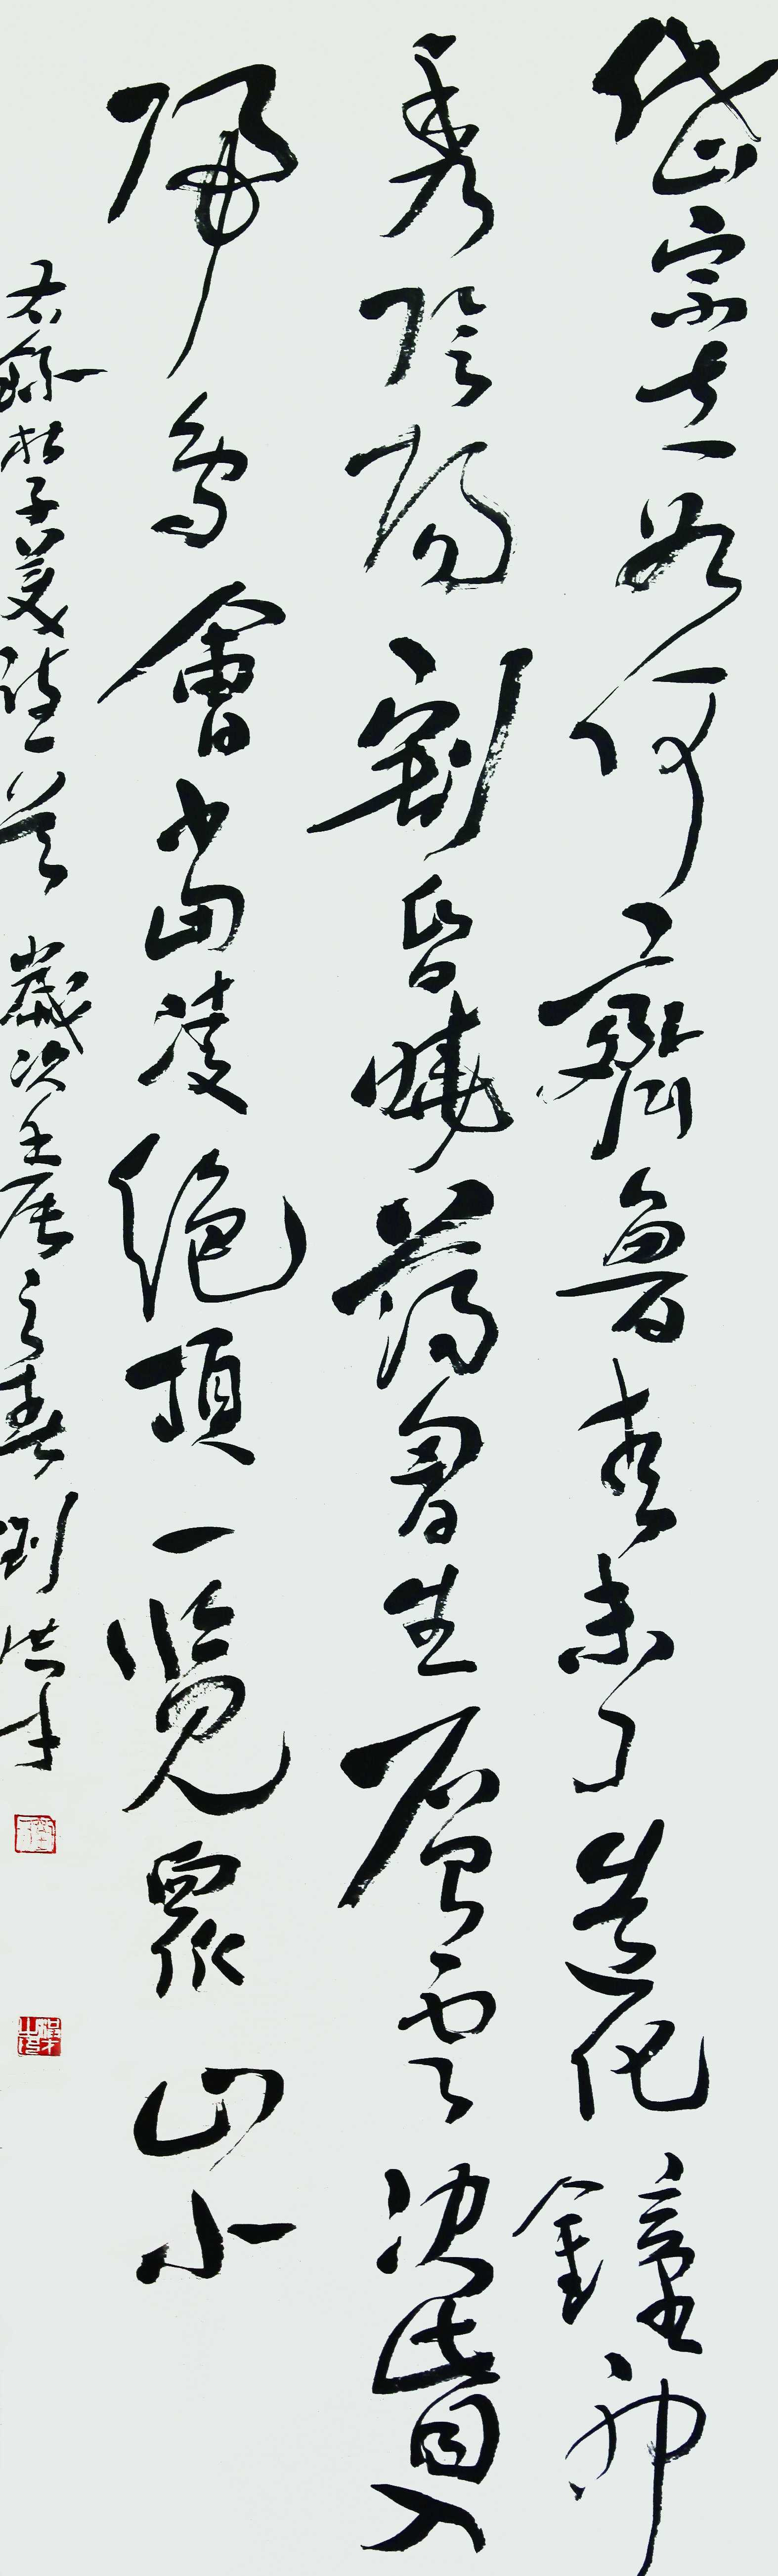 岱宗夫如何齊魯青未了造化鐘神
秀陰陽割昏曉蕩胸生層雲決眥入
歸鳥會當凌絕頂一覽眾山小
右錄杜子美詩一首 歲次壬辰之春 劉洪才